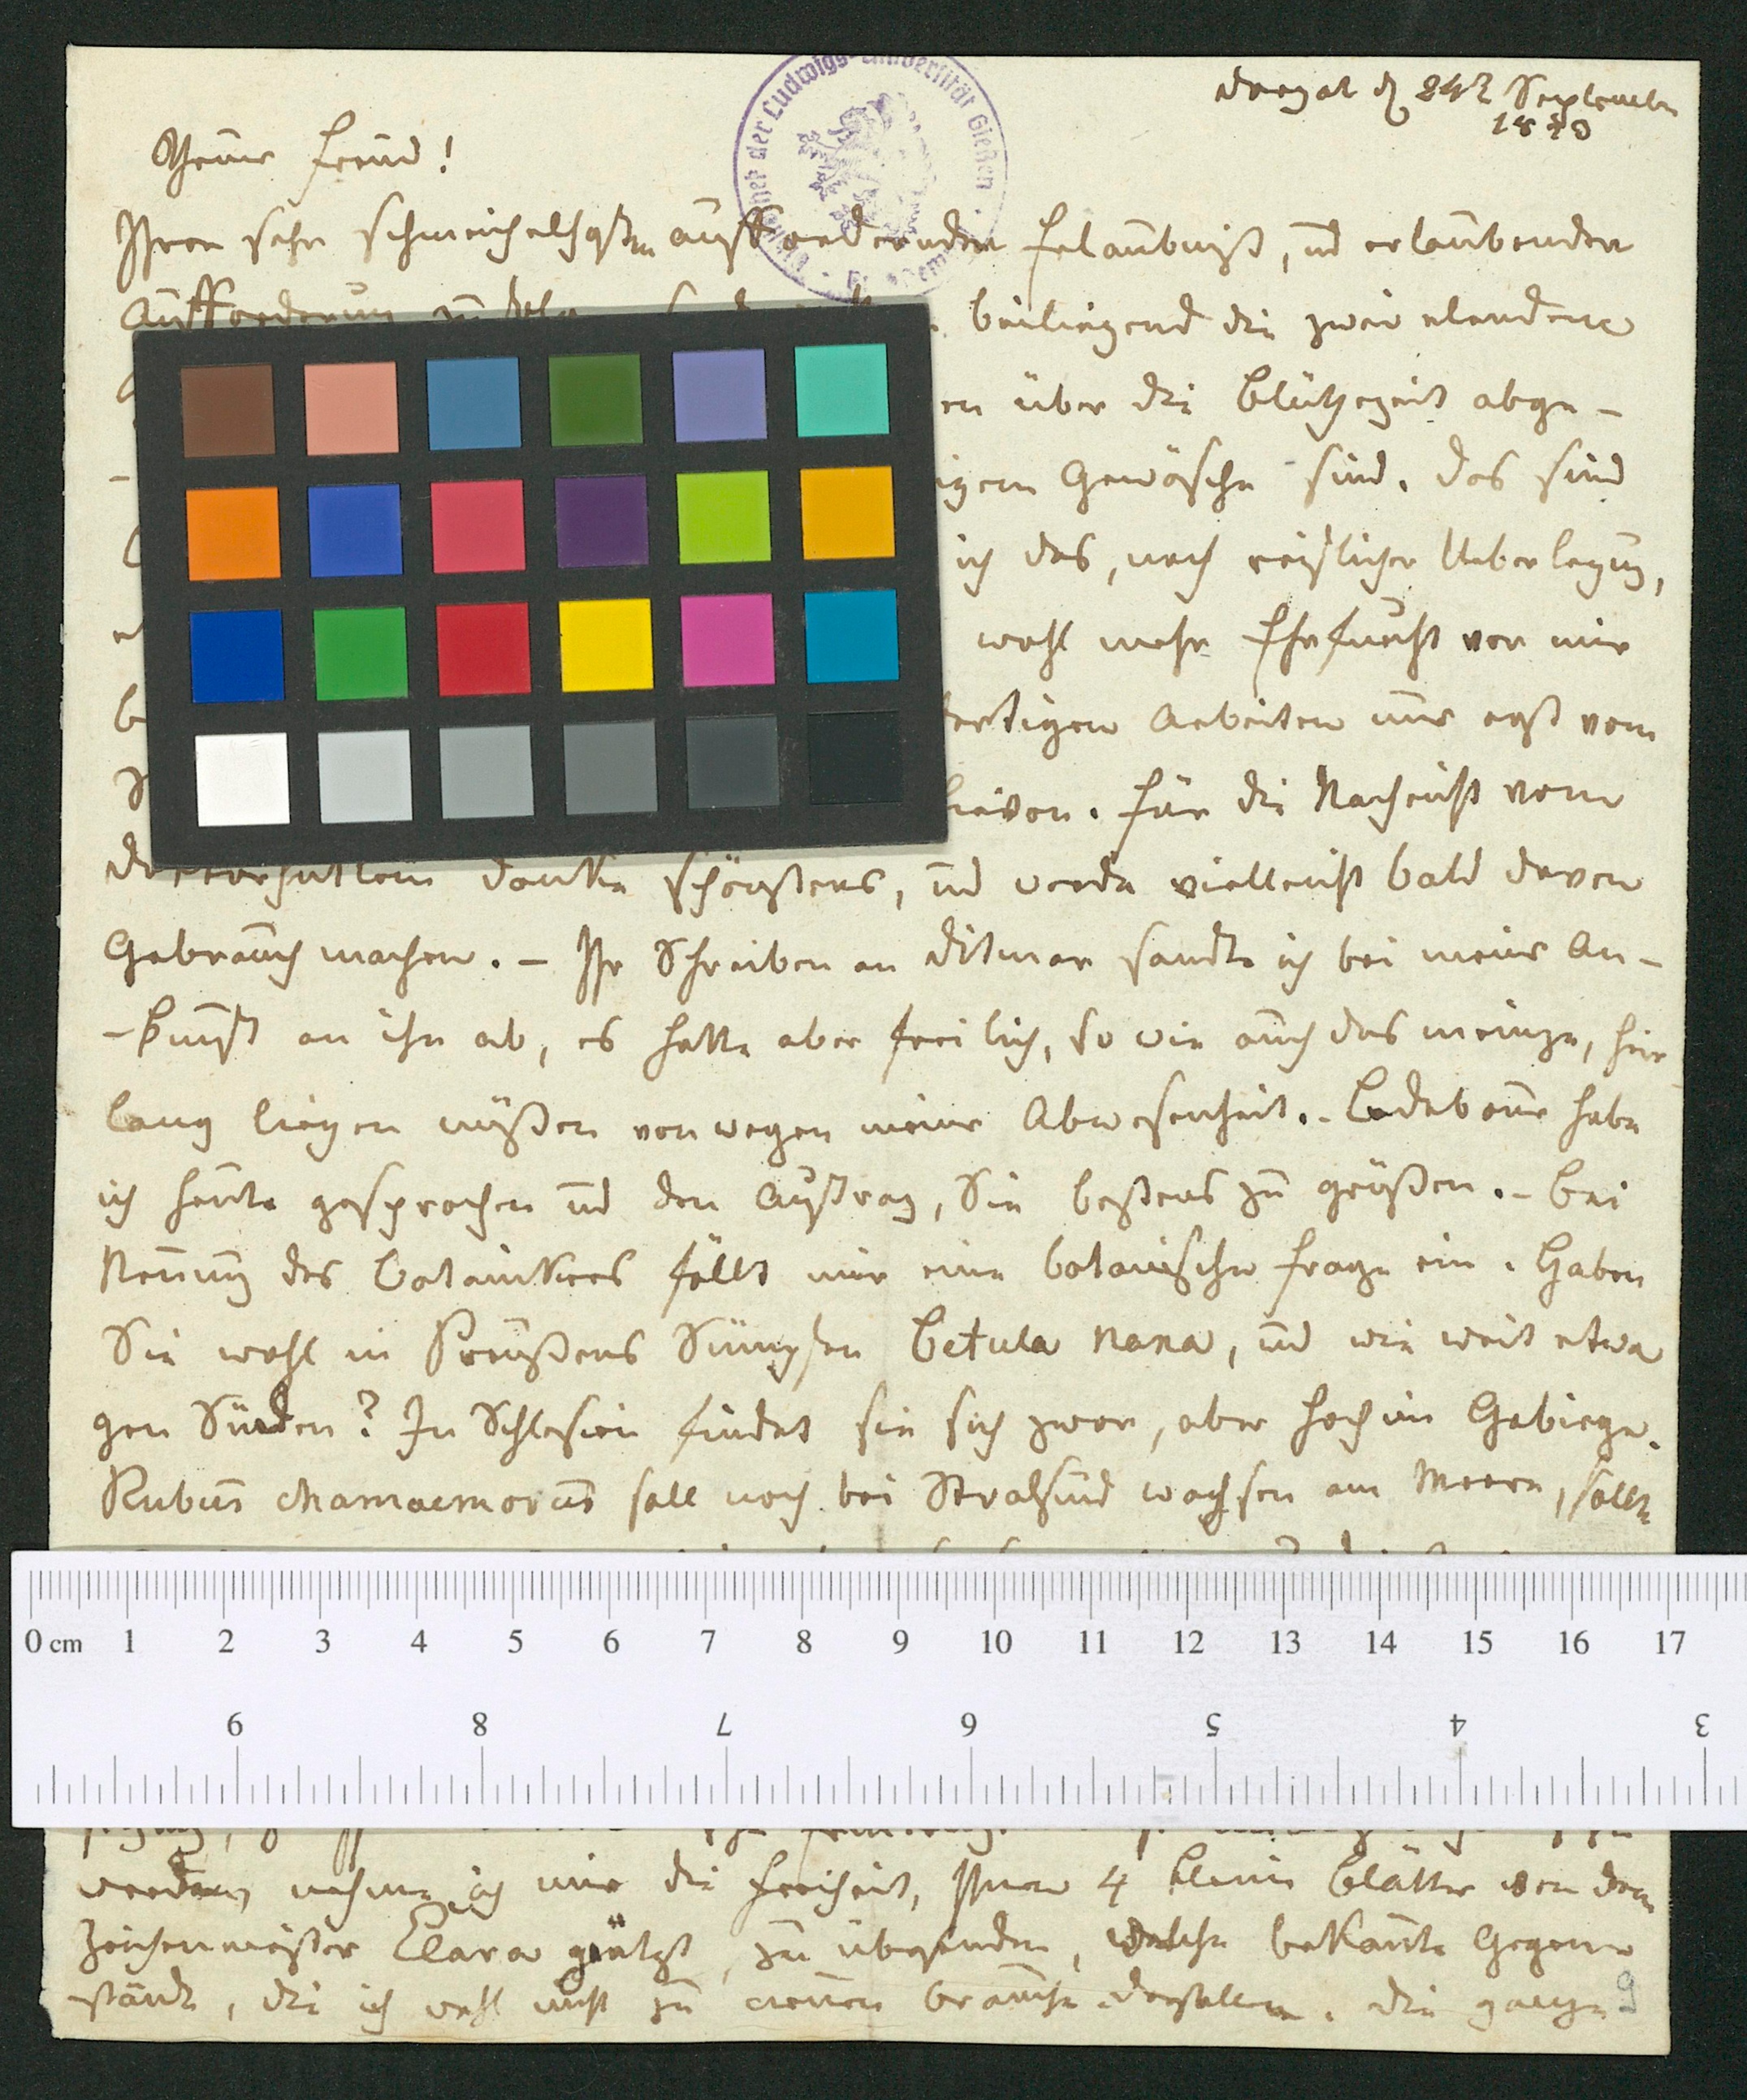 Dorpat d 24t September
18
Theurer Freund!
Ihrer sehr schmeichelhaften auffordernden Erlaubniß, und erlaubenden
Aufforderung zu beiliegend die zwei elenden
en über die Blüthezeit abge-
Gewäsche sind. Das sind
ich das, nach reiflicher Ueberlegung,
wohl mehr Ehrfurcht vor mir
fertigen Arbeiten nur erst vom
hievon. Für die Nachricht vom
danke schönstens, und werde vielleicht bald davon
Gebrauch machen. – Ihr Schreiben an Ditmar sandte ich bei meiner An-
-kunft an ihn ab, es hatte aber freilich, so wie auch das meinige, hier
lang liegen müßen von wegen meiner Abwesenheit. – Ledebour habe
ich heute gesprochen und den Auftrag, Sie bestens zu grüßen. – Bei
Nennung des Botanikers fällt mir eine botanische Frage ein. Haben
Sie wohl in Preußens Sümpfen Betula nana, und wie weit etwa
gen Süden? In Schlesien findet sie sich zwar, aber hoch im Gebirge.
Rubus chamaemorus soll noch bei Stralsund wachsen am Meere, sollte
werden, nehme ich mir die Freiheit, Ihnen 4 kleine Blätter von dem
Zeichenmeister Clara geätzt, zu übersenden, welche bekannte Gegen-
stände, die ich wohl nicht zu nennen brauche darstellen. Die ganze
9
Bibliothek der Ludwigs-Universität Gießen
0 cm 1 2 3 4 5 6 7 8 9 10 11 12 13 14 15 16 17
9 8 7 6 5 4 3